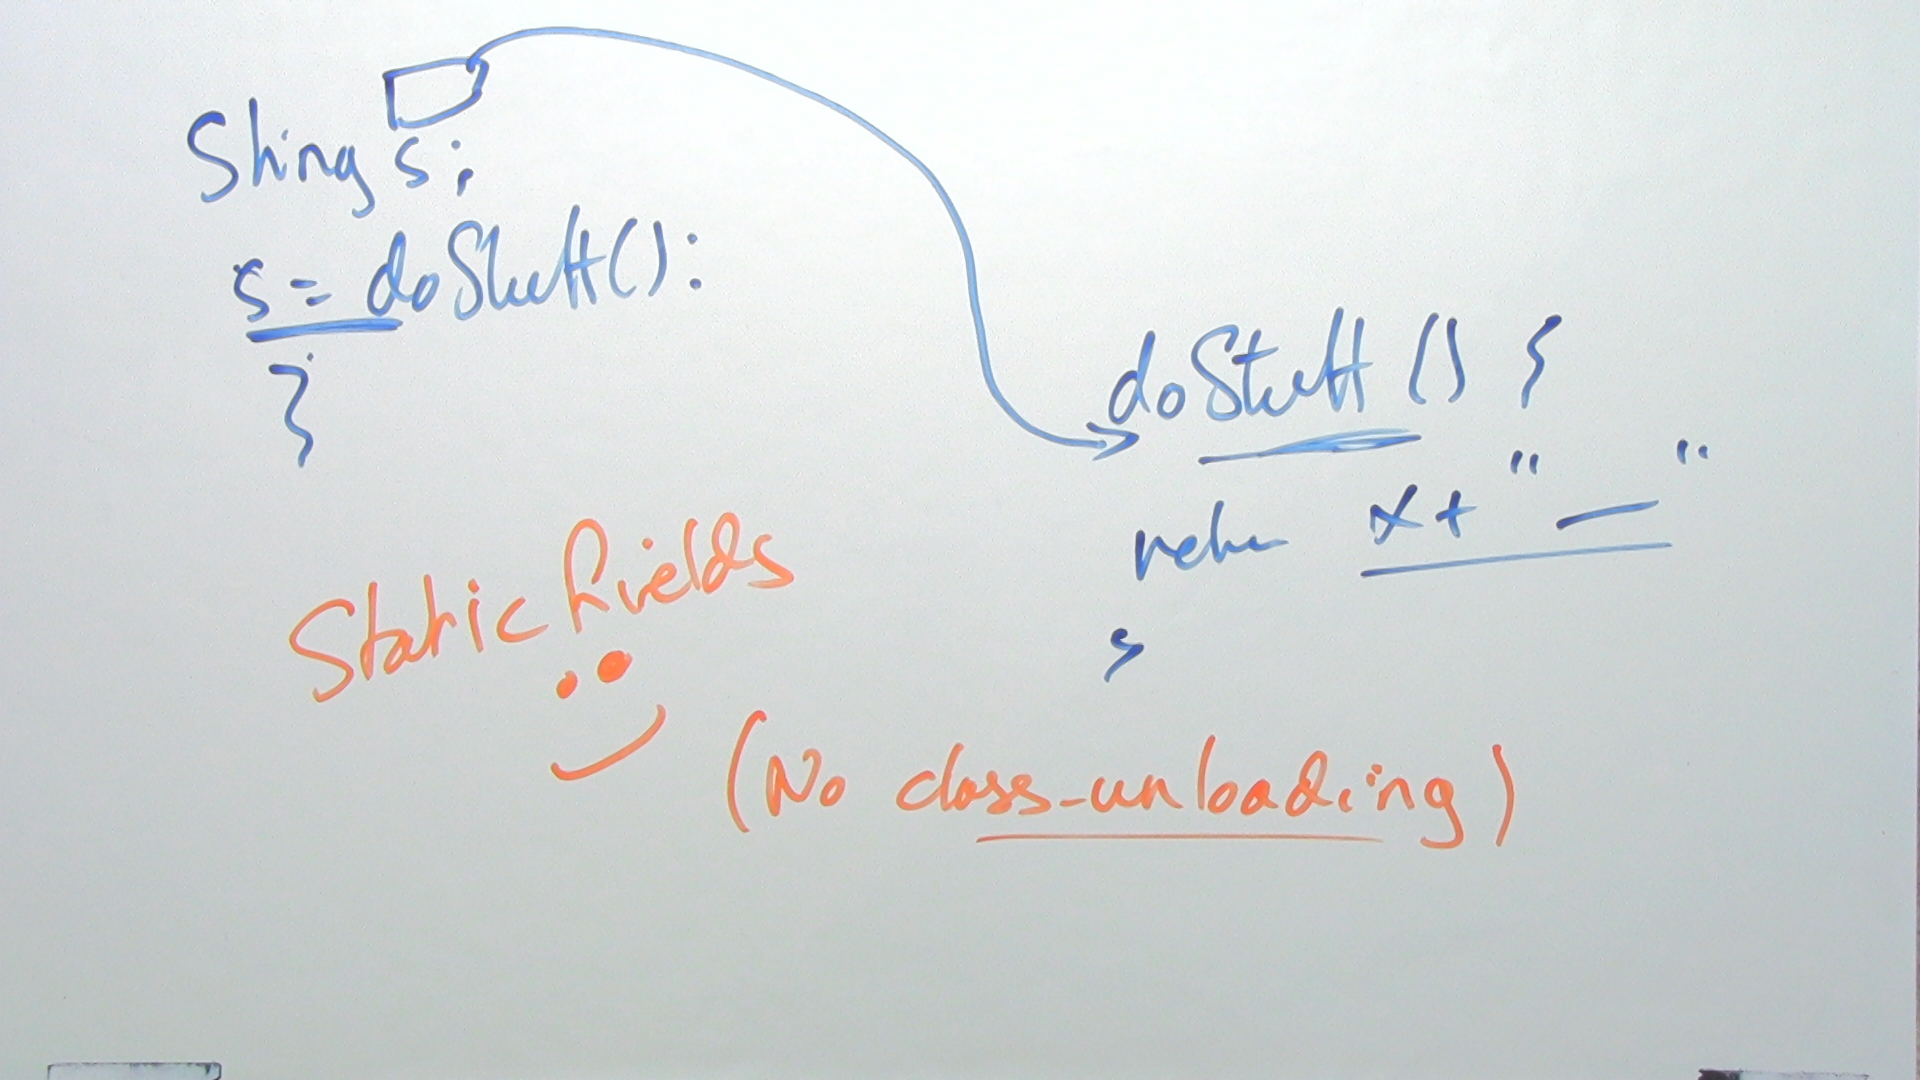 String s;
s = doStuff();
}
doStuff() {
return x + "—"
}
Static fields
(No class-unloading)